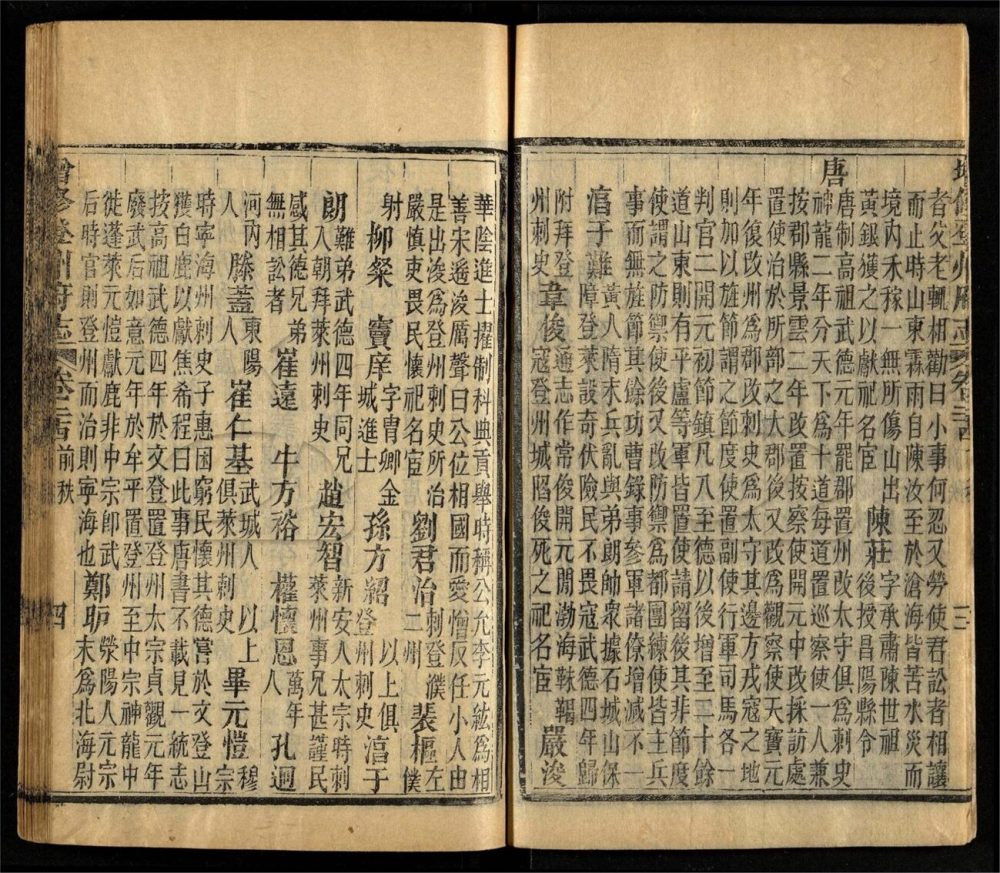 增修登州府志 卷二十四 三
者父老輒相勸曰小事何忍又勞使君訟者相讓
而止時山東霖雨自陳汝至於滄海皆苦水災而
境內禾稼一無所傷山出
黃銀獲之以獻祀名宦
陳莊
字承肅陳世祖
後授昌陽縣令
唐
唐制高祖武德元年罷郡置州改太守俱爲刺史
神龍二年分天下爲十道每道置巡察使一人兼
按郡縣景雲二年改置按察使開元中改採訪處
置使治於所部之大郡後又改爲觀察使天寶元
年復改州爲郡改刺史爲太守其邊方戎寇之地
則加以旌節謂之節度使置副使行軍司馬各一
判官二開元初節鎮凡八至德以後增至二十餘
道山東則有平盧等軍皆置使請留後其非節度
使謂之防禦使後又改防禦爲都團練使皆主兵
事而無旌節其餘功曹錄事參軍諸條增減不一
淳于難
黃縣人隋末兵亂與弟朗帥衆據石城山保
障登萊設奇伏險民不畏寇武德四年歸
附拜登
州刺史
韋俊
通志作常俊開元開渤海靺鞨
寇登州城陷俊死之祀名宦
嚴浚
華陰進士擢制科典貢舉時稱公允李元紘爲相
善宋遥浚厲聲曰公位相國而愛憎反任小人由
是出浚爲登州刺史所治
嚴愼吏畏民懷祀名宦
劉君治
刺登濮
二州
裴樞
左
僕
射
柳粲
竇庠
字胄卿金
城進士
孫方紹
以上俱
登州刺史
淳于
朗
難弟武德四年同兄
入朝拜萊州刺史
趙宏智
新安人太宗時刺
萊州事兄甚謹民
感其德兄弟
無相訟者
崔遠
牛方裕
權懷恩
萬年
人
孔迥
河內
人
滕蓋
東陽
人
崔仁基
武城人以上
俱萊州刺史
畢元愷
穆
宗
時寧海州刺史子惠困窮民懷其德嘗於文登山
獲白鹿以獻焦希程曰此事唐書不載見一統志
按高祖武德四年於文登置登州太宗貞觀元年
廢武后如意元年於牟平置登州至中宗神龍中
徙蓬萊元愷獻鹿非中宗卽武
后時官則登州而治則寧海也
鄭
滎陽人元宗
末爲北海尉
增修登州府志 卷二十四 前秩 四